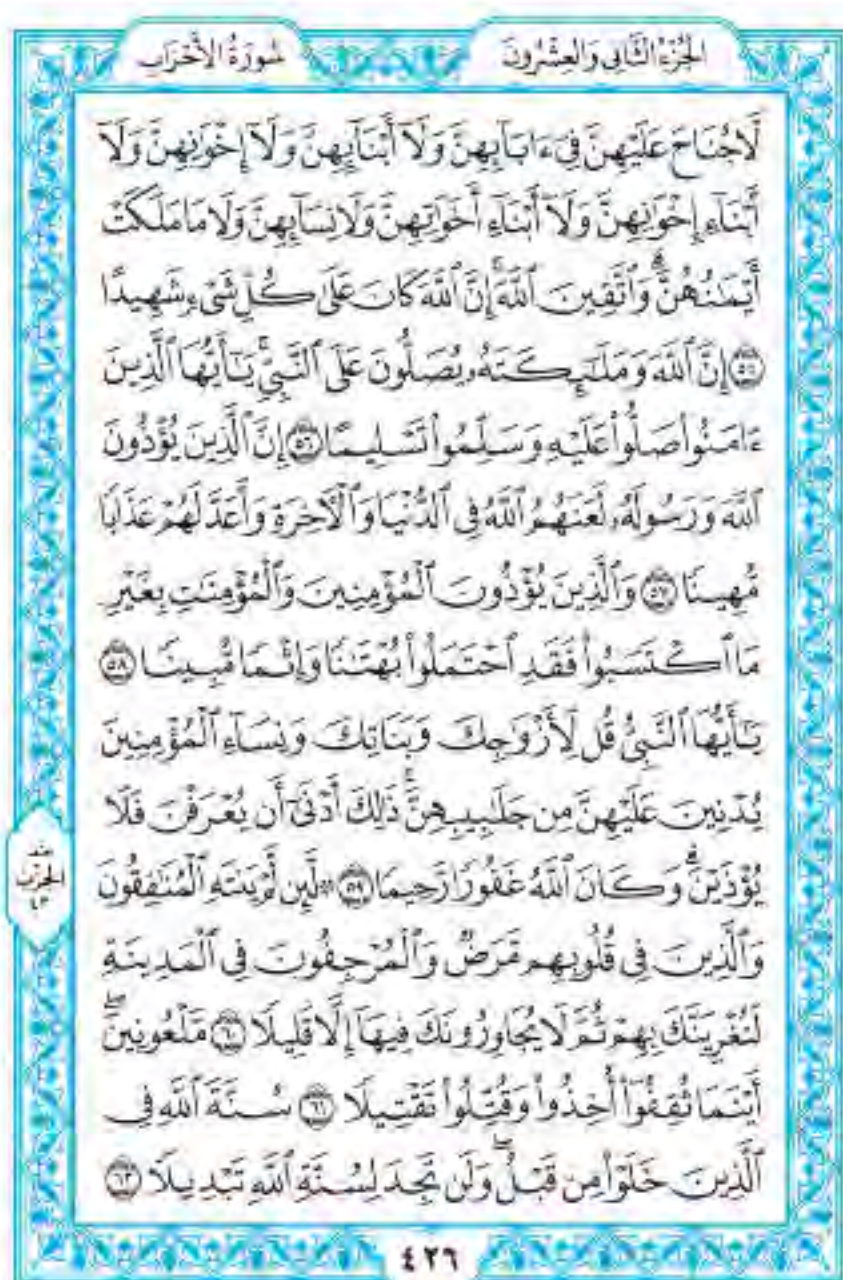 الجُزْءُ الثَّانِى وَالعِشْرُونَ
سُورَةُ الأَحْزَابِ
لَّا جُنَاحَ عَلَيْهِنَّ فِىٓ ءَابَآئِهِنَّ وَلَآ أَبْنَآئِهِنَّ وَلَآ إِخْوَٰنِهِنَّ وَلَآ
أَبْنَآءِ إِخْوَٰنِهِنَّ وَلَآ أَبْنَآءِ أَخَوَٰتِهِنَّ وَلَا نِسَآئِهِنَّ وَلَا مَا مَلَكَتْ
أَيْمَٰنُهُنَّۗ وَٱتَّقِينَ ٱللَّهَۚ إِنَّ ٱللَّهَ كَانَ عَلَىٰ كُلِّ شَىْءٍ شَهِيدًا
۝٥٥ إِنَّ ٱللَّهَ وَمَلَٰٓئِكَتَهُۥ يُصَلُّونَ عَلَى ٱلنَّبِىِّۚ يَٰٓأَيُّهَا ٱلَّذِينَ
ءَامَنُوا۟ صَلُّوا۟ عَلَيْهِ وَسَلِّمُوا۟ تَسْلِيمًا ۝٥٦ إِنَّ ٱلَّذِينَ يُؤْذُونَ
ٱللَّهَ وَرَسُولَهُۥ لَعَنَهُمُ ٱللَّهُ فِى ٱلدُّنْيَا وَٱلْءَاخِرَةِ وَأَعَدَّ لَهُمْ عَذَابًا
مُّهِينًا ۝٥٧ وَٱلَّذِينَ يُؤْذُونَ ٱلْمُؤْمِنِينَ وَٱلْمُؤْمِنَٰتِ بِغَيْرِ
مَا ٱكْتَسَبُوا۟ فَقَدِ ٱحْتَمَلُوا۟ بُهْتَٰنًا وَإِثْمًا مُّبِينًا ۝٥٨
يَٰٓأَيُّهَا ٱلنَّبِىُّ قُل لِّأَزْوَٰجِكَ وَبَنَاتِكَ وَنِسَآءِ ٱلْمُؤْمِنِينَ
يُدْنِينَ عَلَيْهِنَّ مِن جَلَٰبِيبِهِنَّۚ ذَٰلِكَ أَدْنَىٰٓ أَن يُعْرَفْنَ فَلَا
يُؤْذَيْنَۗ وَكَانَ ٱللَّهُ غَفُورًا رَّحِيمًا ۝٥٩ ۞ لَّئِن لَّمْ يَنتَهِ ٱلْمُنَٰفِقُونَ
وَٱلَّذِينَ فِى قُلُوبِهِم مَّرَضٌ وَٱلْمُرْجِفُونَ فِى ٱلْمَدِينَةِ
لَنُغْرِيَنَّكَ بِهِمْ ثُمَّ لَا يُجَاوِرُونَكَ فِيهَآ إِلَّا قَلِيلًا ۝٦٠ مَّلْعُونِينَۖ
أَيْنَمَا ثُقِفُوٓا۟ أُخِذُوا۟ وَقُتِّلُوا۟ تَقْتِيلًا ۝٦١ سُنَّةَ ٱللَّهِ فِى
ٱلَّذِينَ خَلَوْا۟ مِن قَبْلُۖ وَلَن تَجِدَ لِسُنَّةِ ٱللَّهِ تَبْدِيلًا ۝٦٢
الحِزْب
٤٣
٤٢٦